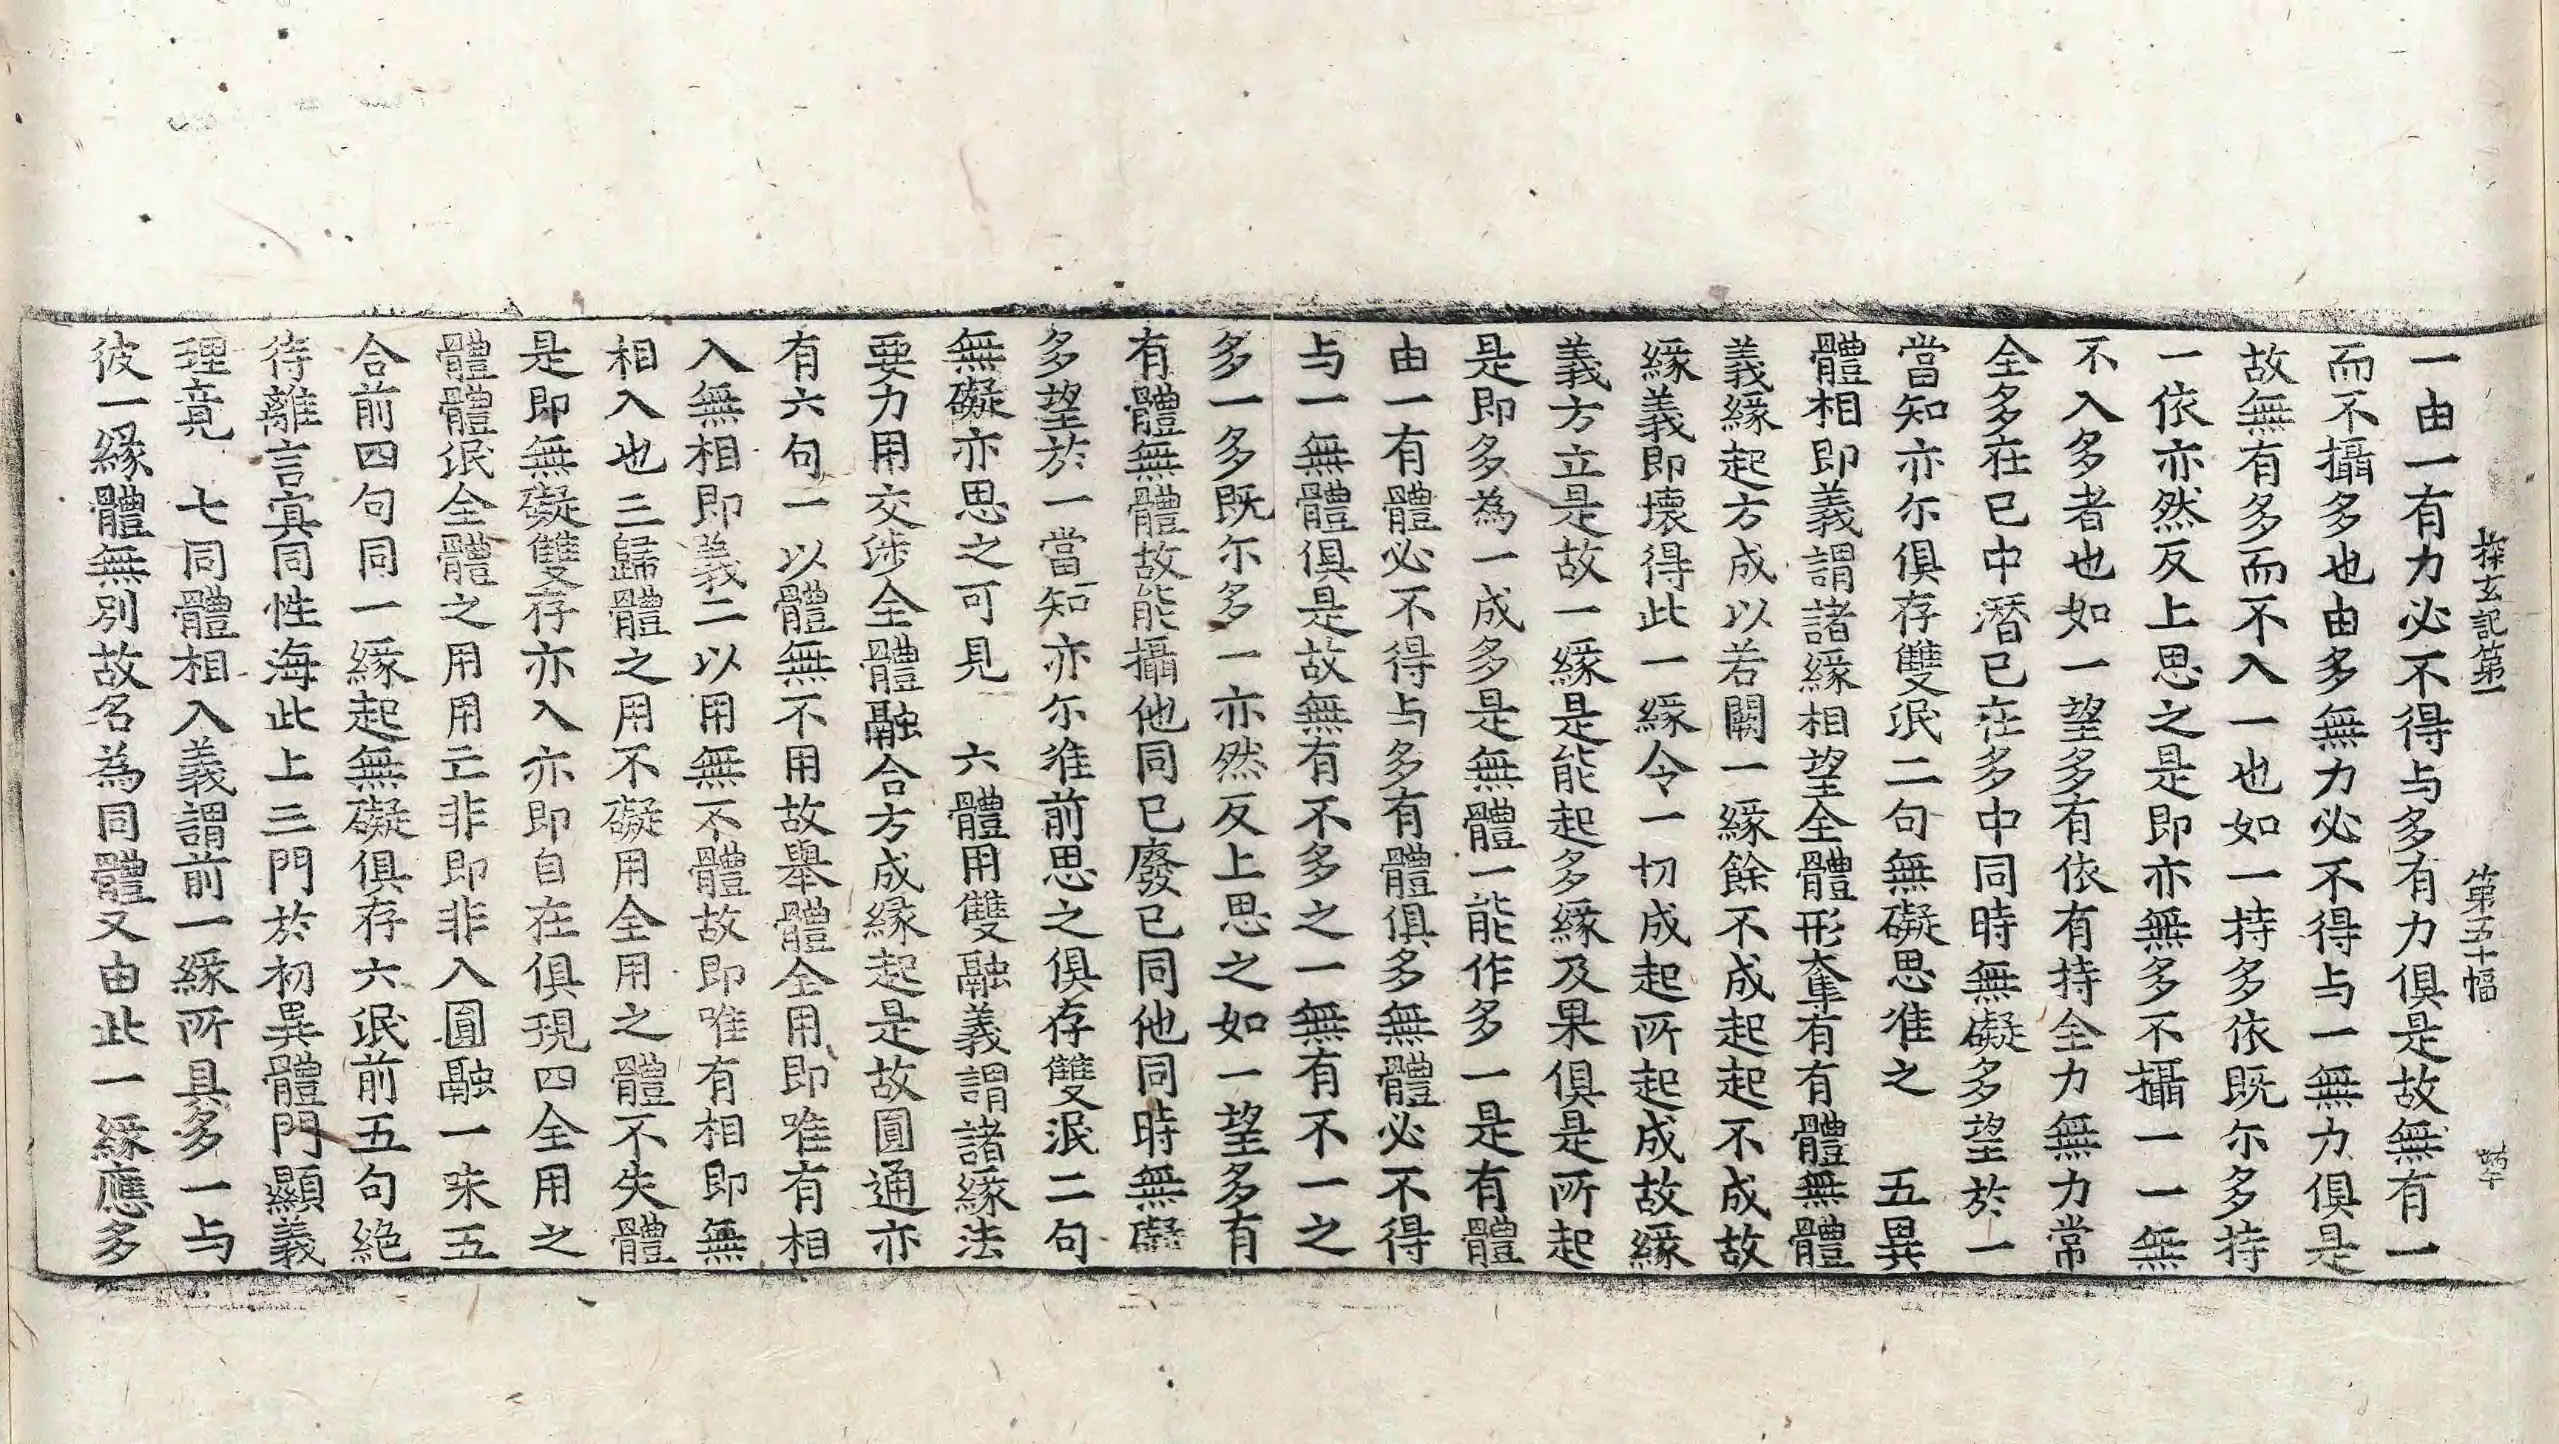 探玄記第一 第五十幅
一由一有力必不得与多有力俱是故無有一
而不攝多也由多無力必不得与一無力俱是
故無有多而不入一也如一持多依既尒多持
一依亦然反上思之是即亦無多不攝一一無
不入多者也如一望多有依有持全力無力常
全多在已中潛已在多中同時無礙多望於一
當知亦尒俱存雙泯二句無礙思准之 五異
體相即義謂諸緣相望全體形奪有有體無體
義緣起方成以若闕一緣餘不成起起不成故
緣義即壞得此一緣令一切成起所起成故緣
義方立是故一緣是能起多緣及果俱是所起
是即多為一成多是無體一能作多一是有體
由一有體必不得与多有體俱多無體必不得
与一無體俱是故無有不多之一無有不一之
多一多既尒多一亦然反上思之如一望多有
有體無體故能攝他同已廢已同他同時無礙
多望於一當知亦尒准前思之俱存雙泯二句
無礙亦思之可見 六體用雙融義謂諸緣法
要力用交涉全體融合方成緣起是故圓通亦
有六句一以體無不用故舉體全用即唯有相
入無相即義二以用無不體故即唯有相即無
相入也三歸體之用不礙用全用之體不失體
是即無礙雙存亦入亦即自在俱現四全用之
體體泯全體之用用亡非即非入圓融一味五
合前四句同一緣起無礙俱存六泯前五句絕
待離言冥同性海此上三門於初異體門顯義
理竟 七同體相入義謂前一緣所具多一与
彼一緣體無別故名為同體又由此一緣應多